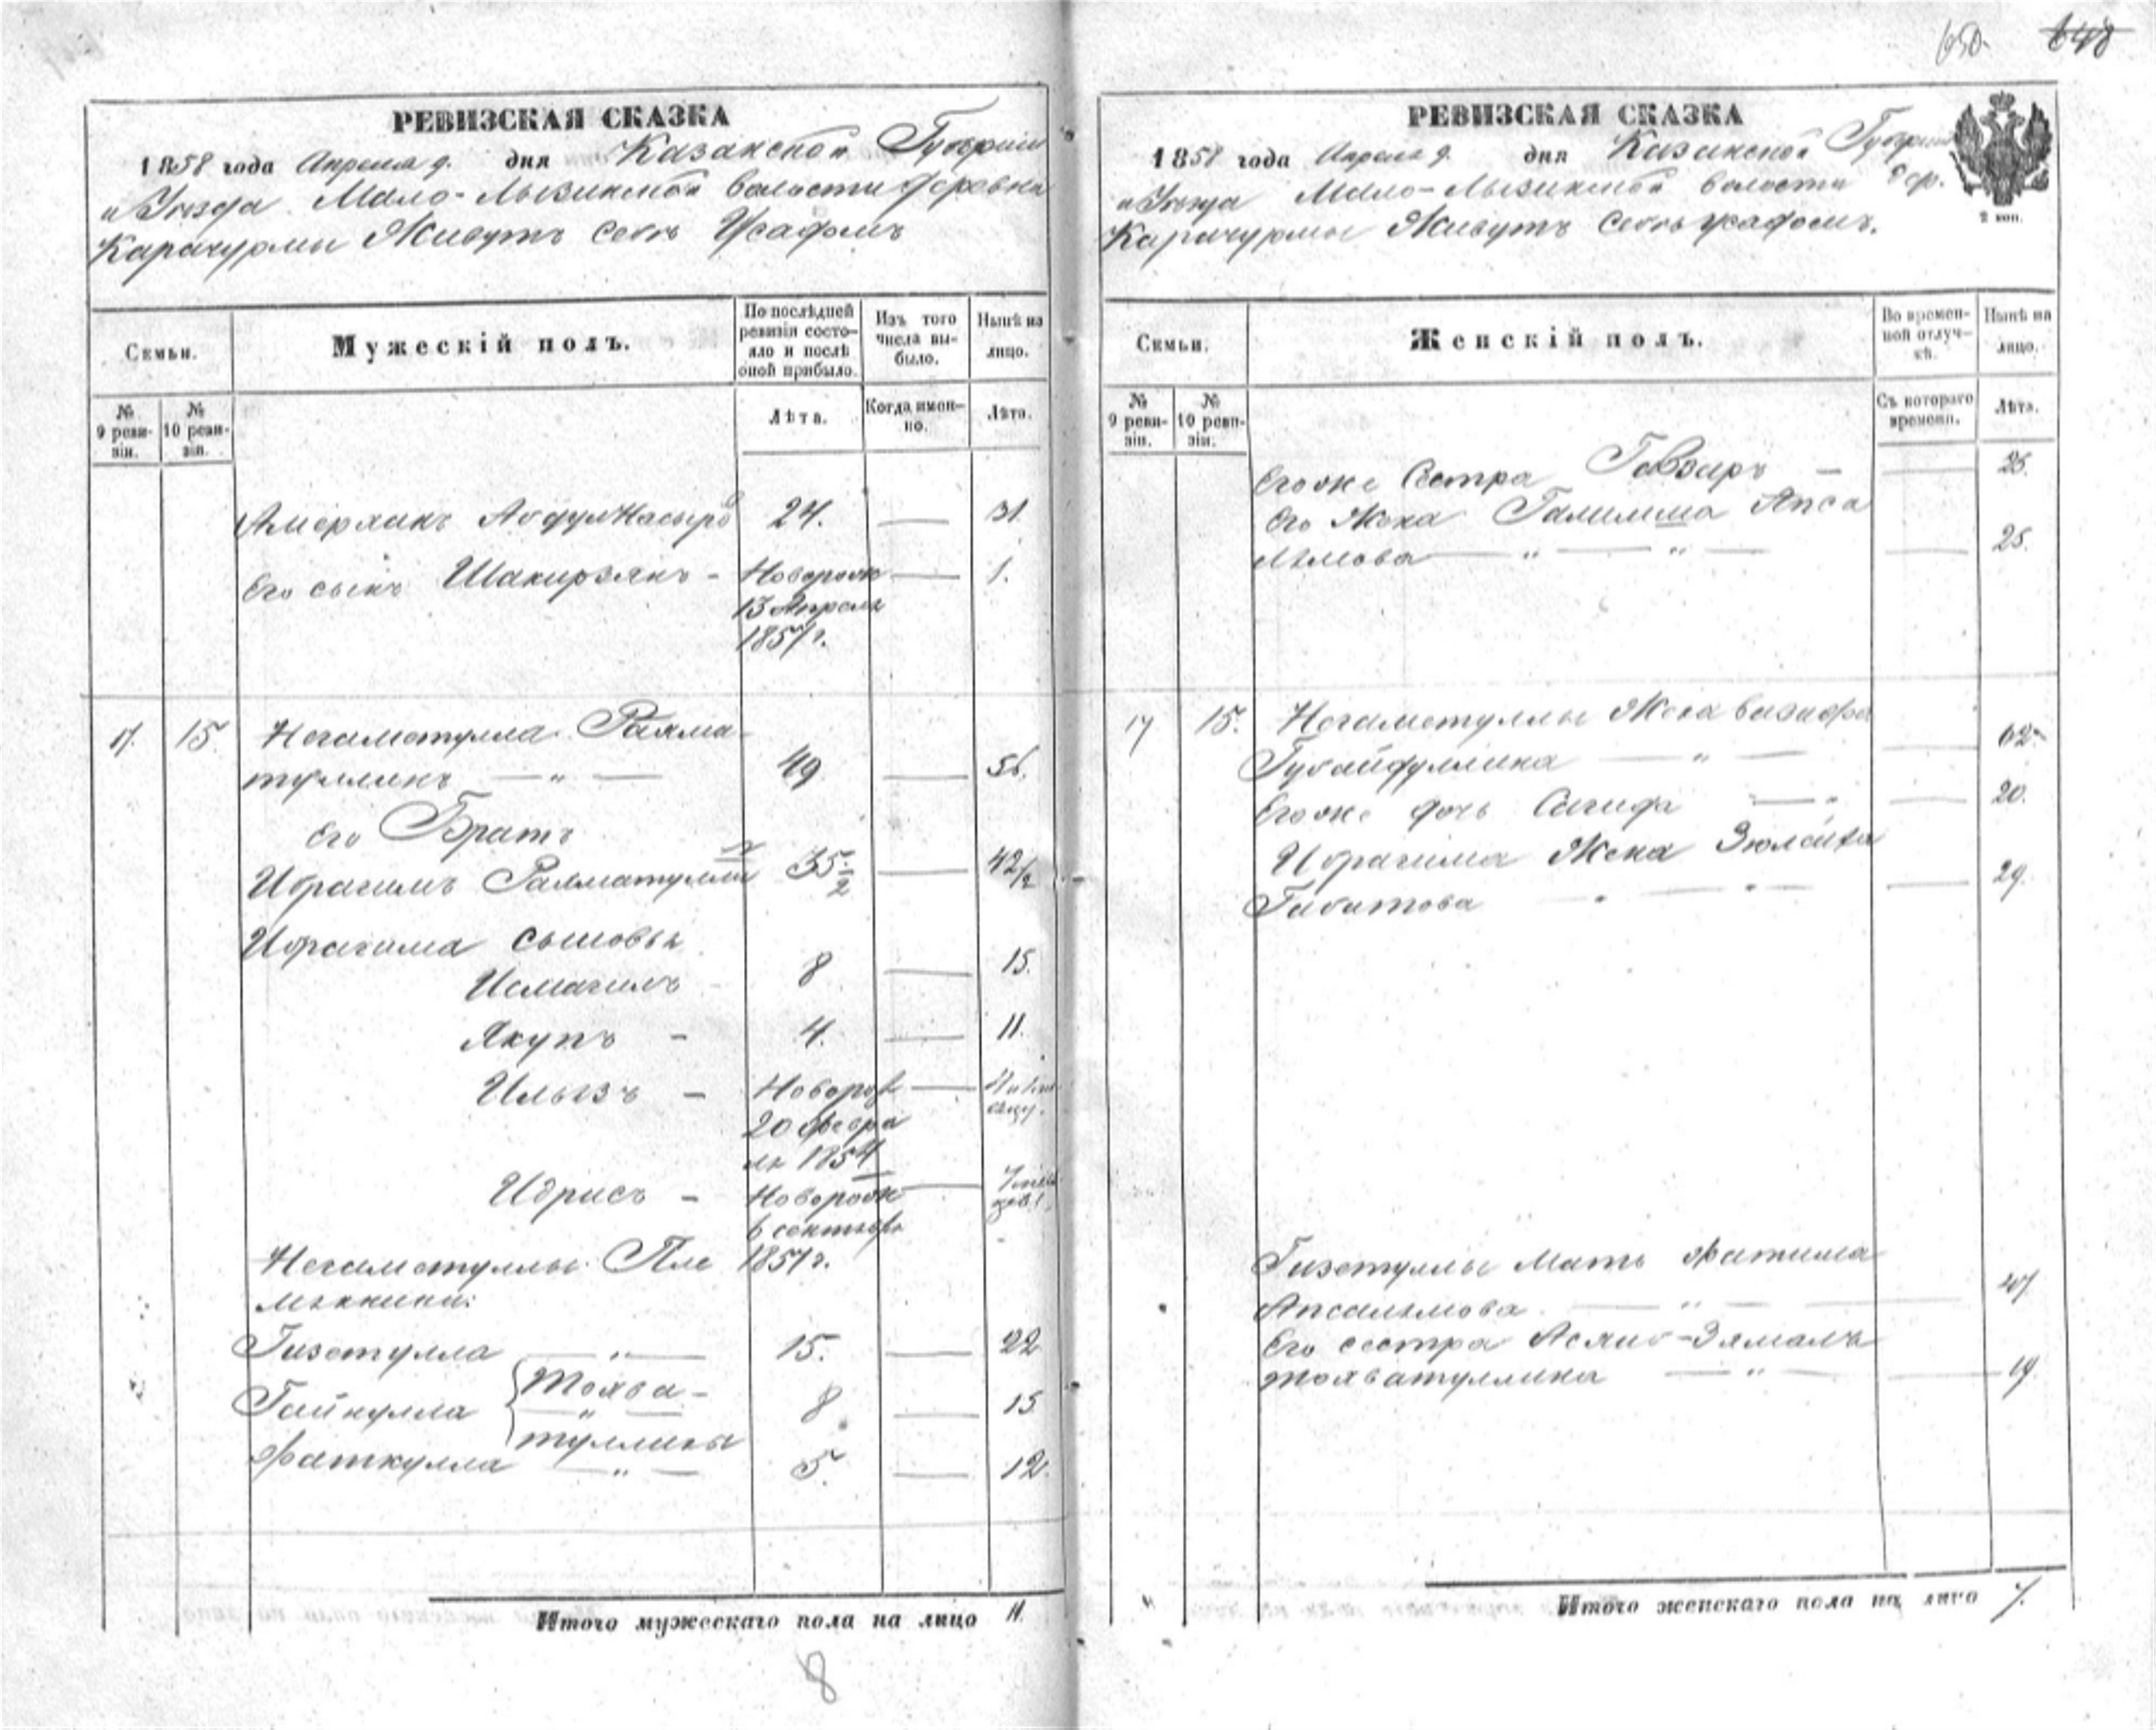 650. 648
РЕВИЗСКАЯ СКАЗКА
1858 года Апреля 9. дня Казанской Губернии
и Уезда Мало-Лызинской волости деревни
Карачурмы Живутъ своъ Усадомъ
Семьи.
Мужескій полъ.
По послѣдней ревизіи состояло и послѣ оной прибыло.
Изъ того числа выбыло.
Нынѣ на лицо.
№ 9 ревизіи.
№ 10 ревизіи.
Лѣта.
Когда именно.
Лѣта.
Амерханъ Абдулнасыро 24. — 31
Его сынъ Шакирзянъ - Новорож — 1.
13 Апреля
1857 г.
17. 15 Негаметулла Рахма-
туллинъ — " — 49 — 56.
Его Братъ
Ибрагимъ Рахматулли 35/2 — 42/2
Ибрагима сыновья
Исмагилъ 8 — 15.
Якупъ - 4. — 11.
Ильязъ - Новорож —
20 Февра
ля 1854
Идрисъ - Новорож —
6 сентябр
Негаметуллы Пле 1857 г.
мянники:
Гизетулла — " — 15. — 22
Гайнулла { Тохва- 8 — 15
туллины
Фаткулла — " — 5. — 12.
Итого мужескаго пола на лицо 11.
8
РЕВИЗСКАЯ СКАЗКА
1858 года Апреля 9. дня Казанской Губернии
и Уезда Мало-Лызинской волости дер.
Карачурмы Живутъ своъ усадомъ.
2 коп.
Семьи.
Женскій полъ.
Во временной отлучкѣ.
Нынѣ на лицо.
№ 9 ревизіи.
№ 10 ревизіи.
Съ котораго времени.
Лѣта.
Егоже Сестра Гавзаръ — — 26.
Его Жена Галилима Апса
лямова — " — " — — 25.
17 15. Негаметуллы Жена Вазифа
Губайдуллина — " — — 62.
Егоже дочь Сагида — " — 20.
Ибрагима Жена Зюлейха
Габитова — 29.
Гизетуллы Мать Фатима
Апсалямова — " — — 47
Его сестра Асмаб-Зямаля
Тохватуллина — " — — 19.
Итого женскаго пола на лицо 7.